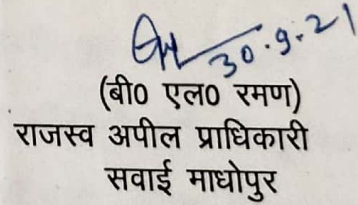 30.9.21
(बी0 एल0 रमण)
राजस्व अपील प्राधिकारी
सवाई माधोपुर